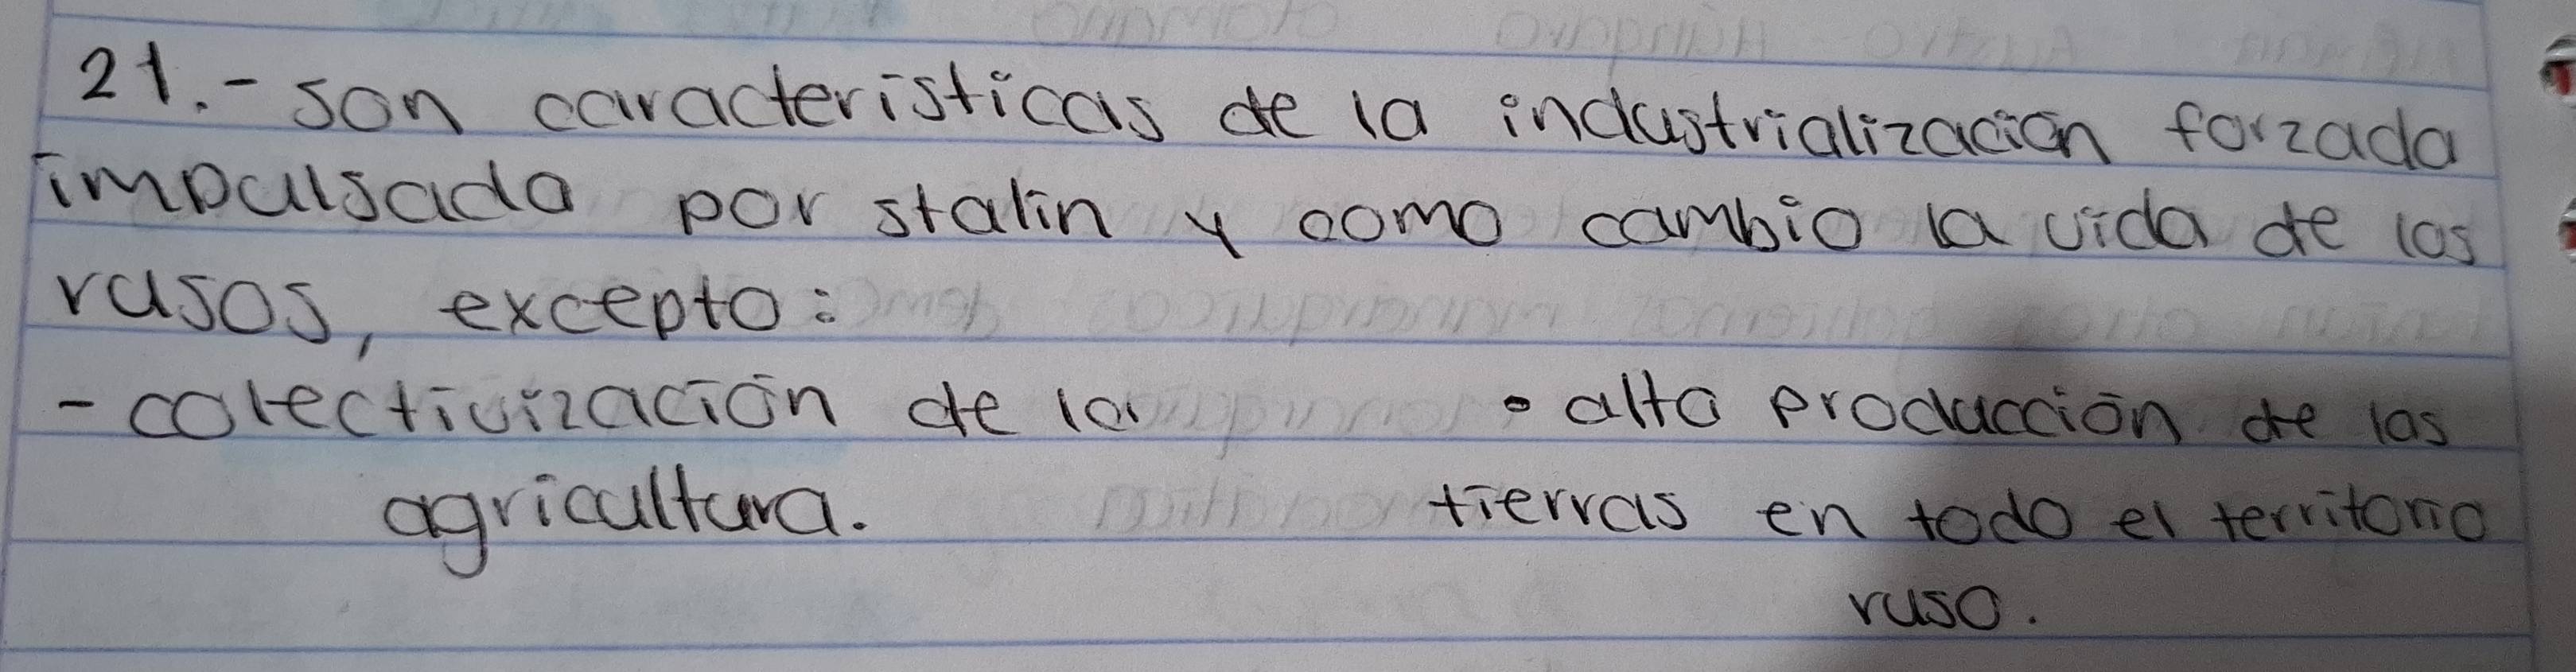 21.- son caracteristicas de la industrialización forzada
impulsada por stalin y como cambio la vida de los
rusos, excepto:
- colectivización de la • alta producción de las
agricultura. tierras en todo el territorio
ruso.